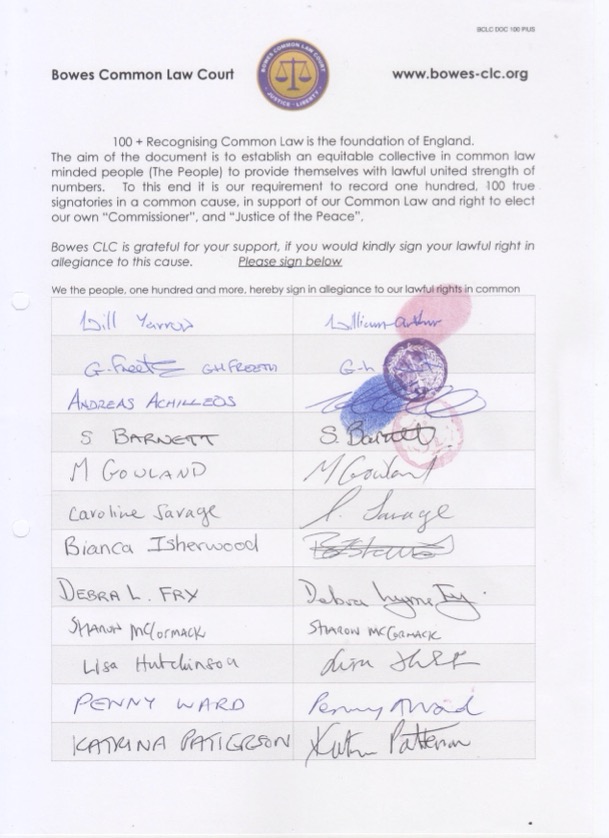 BCLC DOC 100 PlUS
Bowes Common Law Court
BOWES COMMON LAW COURT
JUSTICE - LIBERTY
www.bowes-clc.org
100 + Recognising Common Law is the foundation of England.
The aim of the document is to establish an equitable collective in common law
minded people (The People) to provide themselves with lawful united strength of
numbers. To this end it is our requirement to record one hundred, 100 true
signatories in a common cause, in support of our Common Law and right to elect
our own "Commissioner", and "Justice of the Peace".
Bowes CLC is grateful for your support, if you would kindly sign your lawful right in
allegiance to this cause. Please sign below
We the people, one hundred and more, hereby sign in allegiance to our lawful rights in common
Will Yarrow William-arthur
G. Freeth GH FREETH G-h
ANDREAS ACHILLEOS
S BARNETT S. Barnett
M GOULAND M Gouland
Caroline Savage C. Savage
Bianca Isherwood
DEBRA L. FRY Debra Lynne Fry.
SHARON McCORMACK SHARON McCORMACK
Lisa Hutchinson Lisa
PENNY WARD Penny Ward
KATRINA PATTERSON Patterson